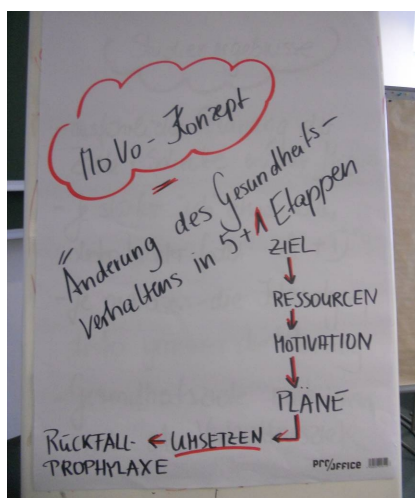 MoVo-Konzept
Änderung des Gesundheits-
verhaltens in 5+1 Etappen
ZIEL
RESSOURCEN
MOTIVATION
PLÄNE
UMSETZEN
RÜCKFALL-
PROPHYLAXE
pro/office